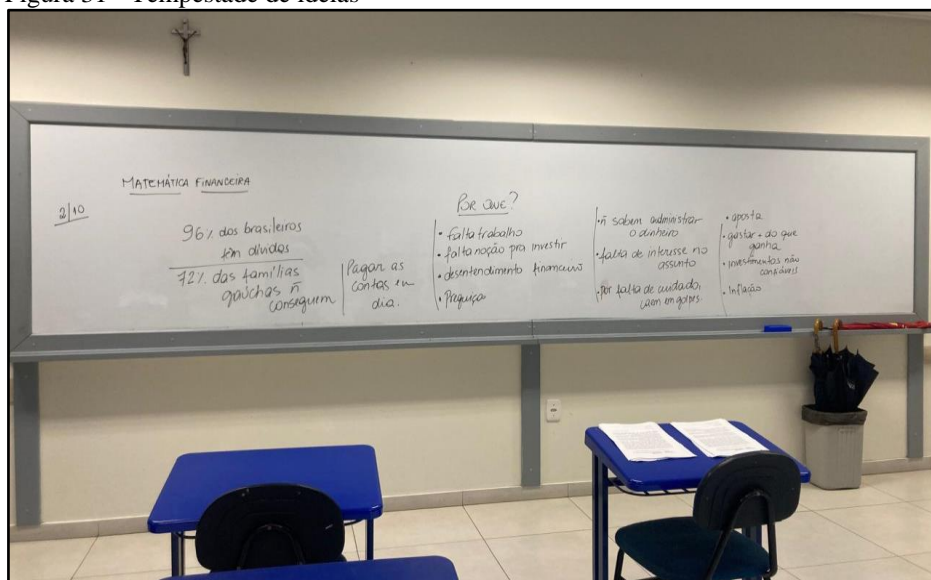 Figura 31 - Tempestade de ideias
MATEMÁTICA FINANCEIRA
2/10
96% dos brasileiros
têm dívidas
72% das famílias
gaúchas ñ
conseguem
Pagar as
contas em
dia.
POR QUE?
• falta trabalho
• falta noção pra investir
• desentendimento financeiro
• Preguiça
• ñ sabem administrar
o dinheiro
• falta de interesse no
assunto
• Por falta de cuidado,
caem em golpes.
• aposta
• gastar + do que
ganha
• investimentos não
confiáveis
• Inflação